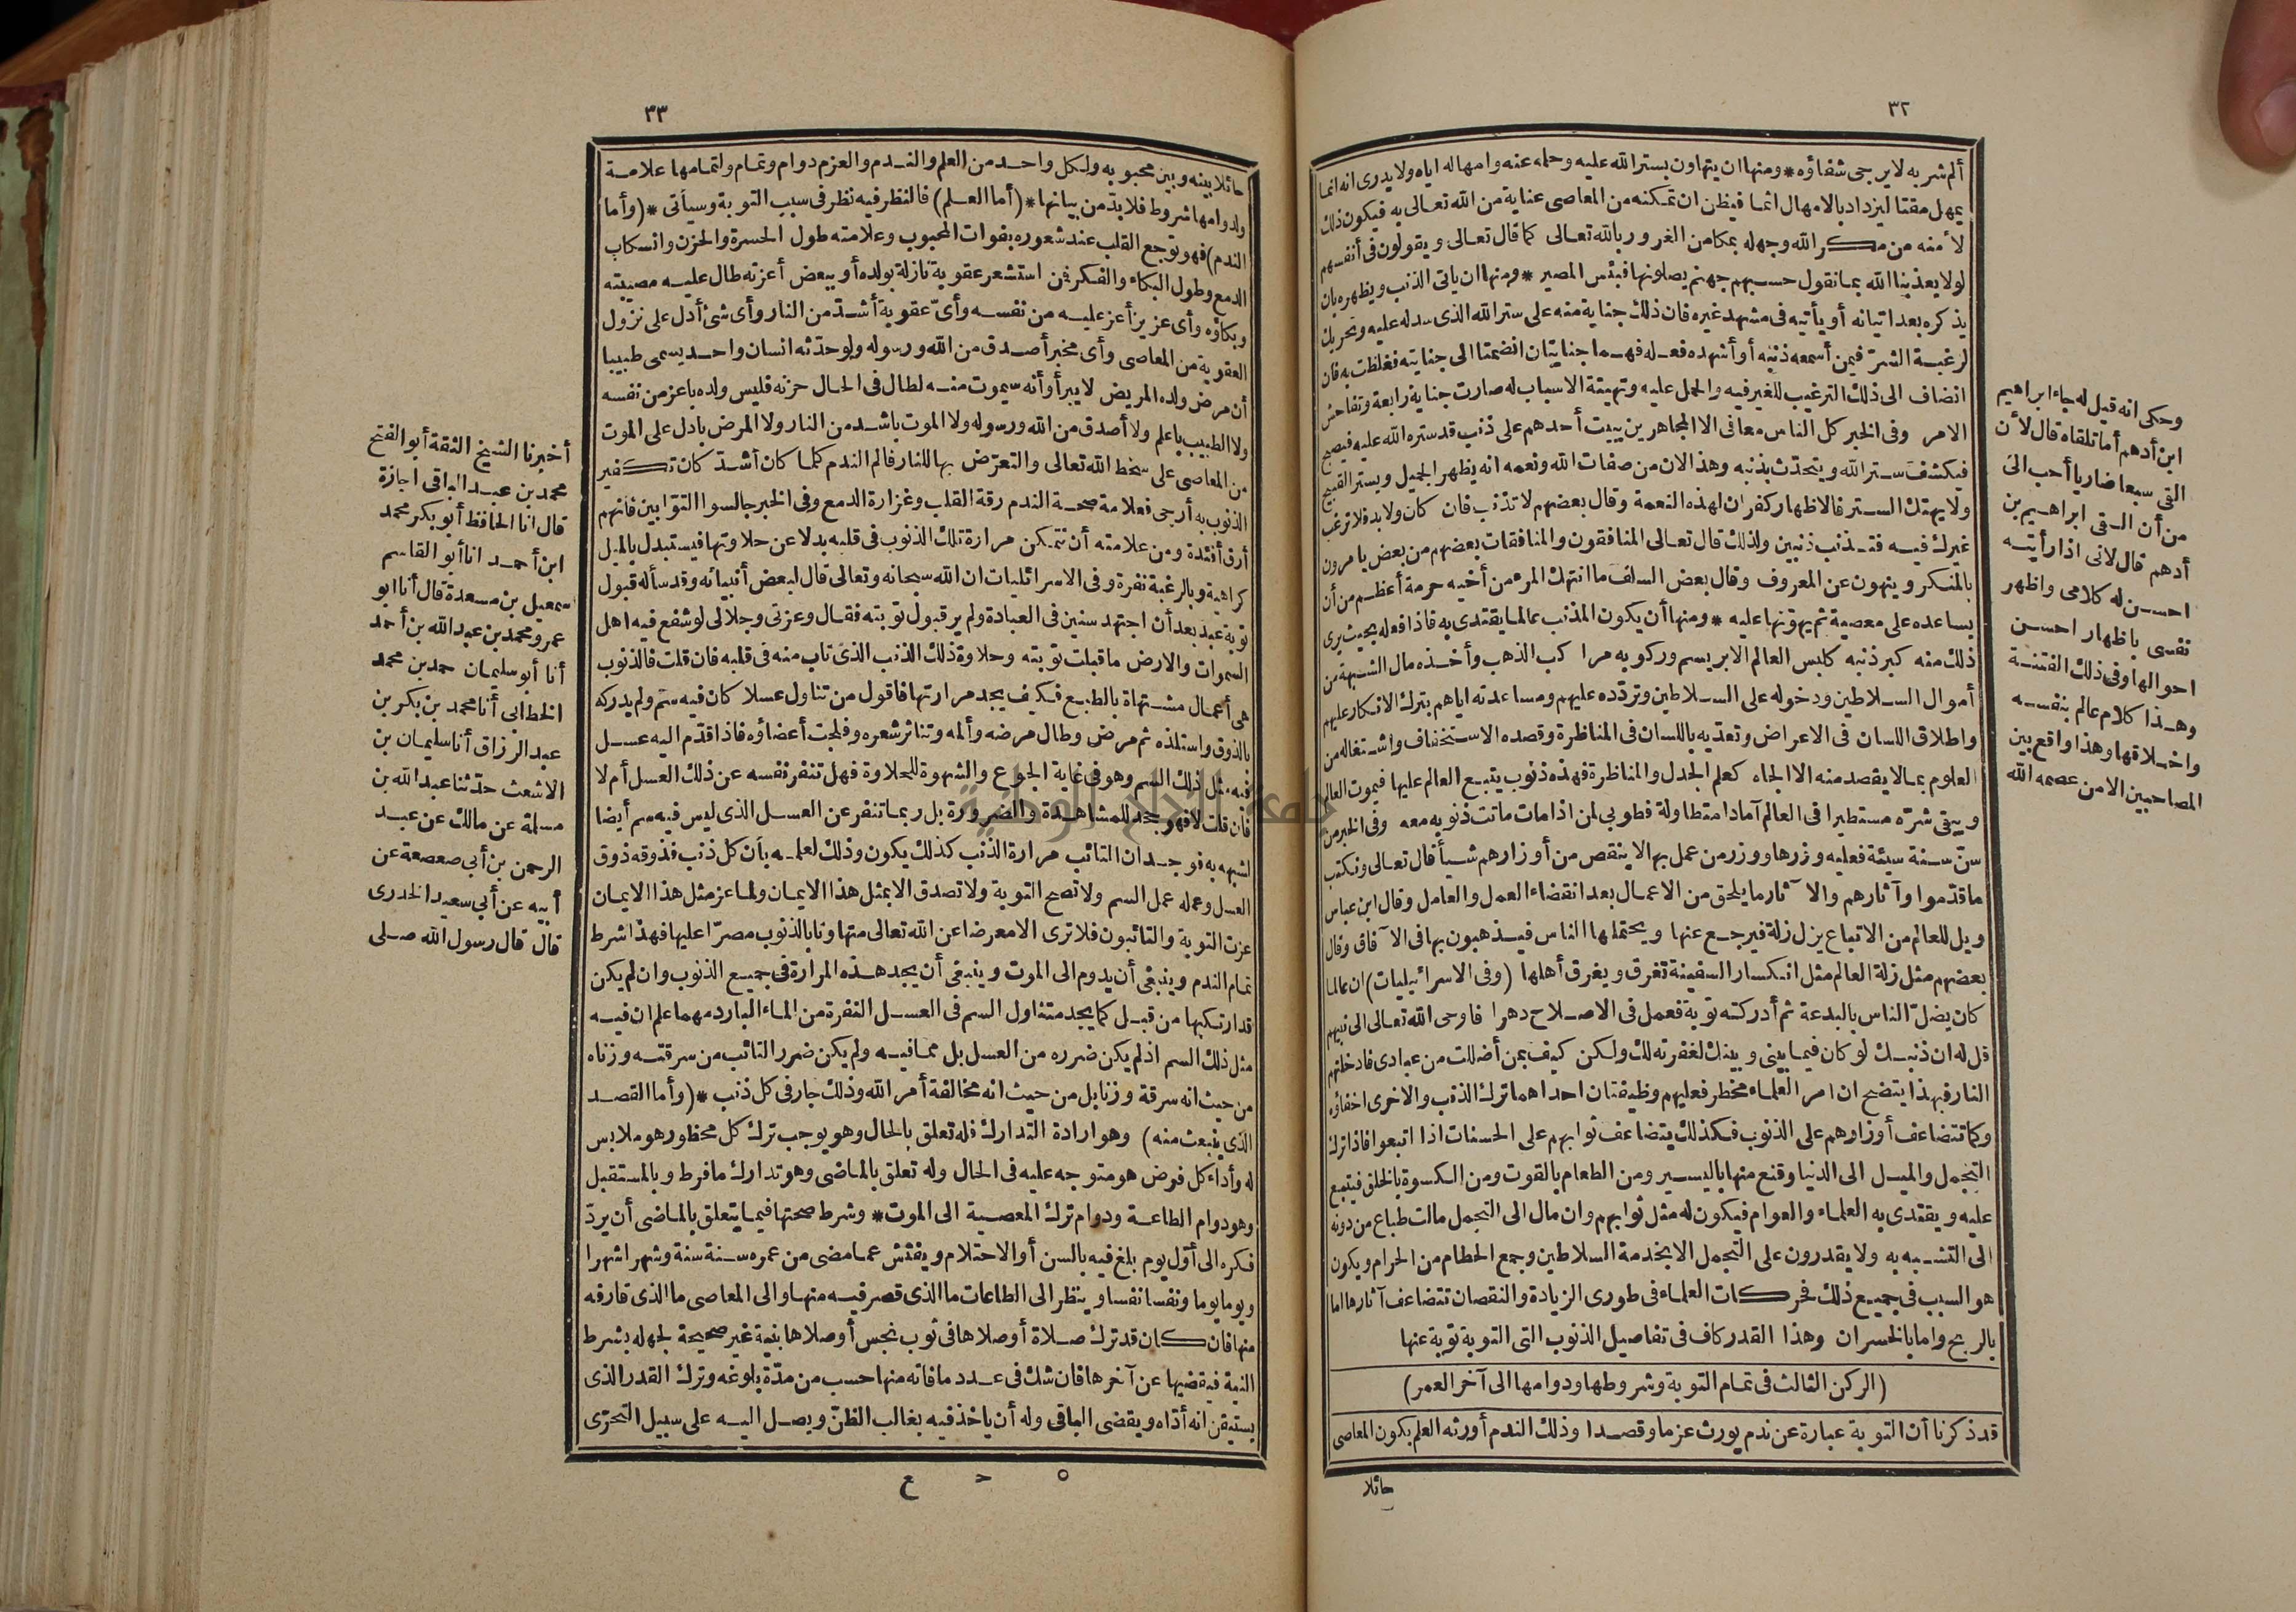 ٣٢
ألم شر به لا يرجى شفاؤه * ومنها ان يتهاون بستر الله عليه وحله عنه وامهاله اياه ولا يدرى انه انما
يمهل مقتا ليزداد بالامهال اثما فيظن ان تمكنه من المعاصى عناية من الله تعالى به فيكون ذلك
لأ منه من مكر الله وجهله بمكامن الغرور بالله تعالى كما قال تعالى ويقولون فى أنفسهم
لولا يعذبنا الله بما نقول حسبهم جهنم يصلونها فبئس المصير * ومنها ان يأتى الذنب ويظهره بان
يذكره بعد اتيانه أو يأتيه فى مشهد غيره فان ذلك جناية منه على ستر الله الذى سدله عليه وتحريك
لرغبة الشرّ فيمن أسمعه ذنبه أو أشهده فعله فهما جنايتان انضمتا الى جنايته فغلظت به فان
انضاف الى ذلك الترغيب للغير فيه والحمل عليه وتهيئة الاسباب له صارت جناية رابعة وتفاحش
الامر وفى الخبر كل الناس معافى الا المجاهرين يبيت أحدهم على ذنب قد ستره الله عليه فيصبح
فيكشف ستر الله ويتحدّث بذنبه وهذا لان من صفات الله ونعمه انه يظهر الجميل ويستر القبيح
ولا يهتك الستر فالاظهار كفران لهذه النعمة وقال بعضهم لا تذنب فان كان ولا بد فلا ترغب
غيرك فيه فتذنب ذنبين ولذلك قال تعالى المنافقون والمنافقات بعضهم من بعض يامرون
بالمنكر وينهون عن المعروف وقال بعض السلف ما انتهك المرء من أخيه حرمة أعظم من أن
يساعده على معصية ثم يهونها عليه * ومنها أن يكون المذنب عالما يقتدى به فاذا فعله بحيث يرى
ذلك منه كبر ذنبه كلبس العالم الابريسم وركوبه مراكب الذهب وأخذه مال الشبهة من
أموال السلاطين ودخوله على السلاطين وتردّده عليهم ومساعدته اياهم بترك الانكار عليهم
واطلاق اللسان فى الاعراض وتعدّيه باللسان فى المناظرة وقصده الاستخفاف واشتغاله من
العلوم بما لا يقصد منه الا الجاه كعلم الجدل والمناظرة فهذه ذنوب يتبع العالم عليها فيموت العالم
ويبقى شرّه مستطيرا فى العالم آمادا متطاولة فطوبى لمن اذا مات ماتت ذنوبه معه وفى الخبر من
سنّ سنة سيئة فعليه وزرها ووزر من عمل بها لا ينقص من أوزارهم شيأ قال تعالى ونكتب
ما قدّموا وآثارهم والآثار ما يلحق من الاعمال بعد انقضاء العمل والعامل وقال ابن عباس
ويل للعالم من الاتباع يزل زلة فيرجع عنها ويحتملها الناس فيذهبون بها فى الآفاق وقال
بعضهم مثل زلة العالم مثل انكسار السفينة تغرق ويغرق أهلها (وفى الاسرائيليات) ان عالما
كان يضلّ الناس بالبدعة ثم أدركته توبة فعمل فى الاصلاح دهرا فاوحى الله تعالى الى نبيهم
قل له ان ذنبك لو كان فيما بينى وبينك لغفرته لك ولكن كيف بمن أضللت من عبادى فادخلتهم
النار فبهذا يتضح ان امر العلماء مخطر فعليهم وظيفتان احداهما ترك الذنب والاخرى اخفاؤه
وكما تتضاعف أوزارهم على الذنوب فكذلك يتضاعف ثوابهم على الحسنات اذا اتبعوا فاذا ترك
التجمل والميل الى الدنيا وقنع منها باليسير ومن الطعام بالقوت ومن الكسوة بالخلق فيتبع
عليه ويقتدى به العلماء والعوام فيكون له مثل ثوابهم وان مال الى التجمل مالت طباع من دونه
الى التشبه به ولا يقدرون على التجمل الا بخدمة السلاطين وجمع الحطام من الحرام ويكون
هو السبب فى جميع ذلك فحركات العلماء فى طورى الزيادة والنقصان تتضاعف آثارها اما
بالربح واما بالخسران وهذا القدر كاف فى تفاصيل الذنوب التى التوبة توبة عنها
(الركن الثالث فى تمام التوبة وشروطها ودوامها الى آخر العمر)
قد ذكرنا أن التوبة عبارة عن ندم يورث عزما وقصدا وذلك الندم أورثه العلم بكون المعاصى
حائلا
وحكى انه قيل له جاء ابراهيم
ابن أدهم أما تلقاه قال لأن
القى سبعا ضاريا أحب الىّ
من أن القى ابراهيم بن
أدهم قال لانى اذا رأيته
احسن له كلامى واظهر
نفسى باظهار احسن
احوالها وفى ذلك الفتنة
وهذا كلام عالم بنفسه
واخلاقها وهذا واقع بين
المصاحبين الا من عصمه الله
٣٣
حائلا بينه وبين محبوبه ولكل واحد من العلم والندم والعزم دوام وتمام ولتمامها علامة
ولدوامها شروط فلا بدّ من بيانها * (أما العلم) فالنظر فيه نظر فى سبب التوبة وسيأتى * (وأما
الندم) فهو توجع القلب عند شعوره بفوات المحبوب وعلامته طول الحسرة والحزن وانسكاب
الدمع وطول البكاء والفكر فمن استشعر عقوبة نازلة بولده أو ببعض أعزته طال عليه مصيبته
وبكاؤه وأى عزيز أعز عليه من نفسه وأىّ عقوبة أشدّ من النار وأى شئ أدل على نزول
العقوبة من المعاصى وأى مخبر أصدق من الله ورسوله ولو حدّثه انسان واحد يسمى طبيبا
أن مرض ولده المريض لا يبرأ وأنه سيموت منه لطال فى الحال حزنه فليس ولده باعز من نفسه
ولا الطبيب باعلم ولا أصدق من الله ورسوله ولا الموت باشد من النار ولا المرض بادل على الموت
من المعاصى على سخط الله تعالى والتعرّض بها للنار فالم الندم كلما كان أشدّ كان تكفير
الذنوب به أرجى فعلامة صحة الندم رقة القلب وغزارة الدمع وفى الخبر جالسوا التوّابين فانهم
أرق أفئدة ومن علامته أن تتمكن مرارة تلك الذنوب فى قلبه بدلا عن حلاوتها فيستبدل بالميل
كراهية وبالرغبة نفرة وفى الاسرائليات ان الله سبحانه وتعالى قال لبعض أنبيائه وقد سأله قبول
توبة عبد بعد أن اجتهد سنين فى العبادة ولم ير قبول توبته فقال وعزتى وجلالى لو شفع فيه اهل
السموات والارض ما قبلت توبته وحلاوة ذلك الذنب الذى تاب منه فى قلبه فان قلت فالذنوب
هى أعمال مشتهاة بالطبع فكيف يجد مرارتها فاقول من تناول عسلا كان فيه سمّ ولم يدركه
بالذوق واستلذه ثم مرض وطال مرضه وألمه وتناثر شعره وفلجت أعضاؤه فاذا قدّم اليه عسل
فيه مثل ذلك السم وهو فى غاية الجوع والشهوة للحلاوة فهل تنفر نفسه عن ذلك العسل أم لا
فان قلت لا فهو جحد للمشاهدة والضرورة بل ربما تنفر عن العسل الذى ليس فيه سم أيضا
لشبهه به فوجدان التائب مرارة الذنب كذلك يكون وذلك لعلمه بأن كل ذنب فذوقه ذوق
العسل وعمله عمل السم ولا تصح التوبة ولا تصدق الا بمثل هذا الايمان ولما عز مثل هذا الايمان
عزت التوبة والتائبون فلا ترى الا معرضا عن الله تعالى متهاونا بالذنوب مصرّا عليها فهذا شرط
تمام الندم وينبغى أن يدوم الى الموت وينبغى أن يجد هذه المرارة فى جميع الذنوب وان لم يكن
قد ارتكبها من قبل كما يجد متناول السم فى العسل النفرة من الماء البارد مهما علم ان فيه
مثل ذلك السم اذ لم يكن ضرره من العسل بل مما فيه ولم يكن ضرر التائب من سرقته وزناه
من حيث انه سرقة وزنا بل من حيث انه مخالفة أمر الله وذلك جار فى كل ذنب * (وأما القصد
الذى ينبعث منه) وهو ارادة التدارك فله تعلق بالحال وهو يوجب ترك كل محظور هو ملابس
له وأداء كل فرض هو متوجه عليه فى الحال وله تعلق بالماضى وهو تدارك ما فرط وبالمستقبل
وهو دوام الطاعة ودوام ترك المعصية الى الموت * وشرط صحتها فيما يتعلق بالماضى أن يردّ
فكره الى أوّل يوم بلغ فيه بالسن أو الاحتلام ويفتش عما مضى من عمره سنة سنة وشهرا شهرا
ويوما يوما ونفسا نفسا وينظر الى الطاعات ما الذى قصر فيه منها والى المعاصى ما الذى قارفه
منها فان كان قد ترك صلاة أو صلاها فى ثوب نجس أو صلاها بنية غير صحيحة لجهله بشرط
النية فيقضيها عن آخرها فان شك فى عدد ما فاته منها حسب من مدّة بلوغه وترك القدر الذى
يستيقن انه أدّاه ويقضى الباقى وله أن ياخذ فيه بغالب الظنّ ويصل اليه على سبيل التحرّى
٥ ح ع
أخبرنا الشيخ الثقة أبو الفتح
محمد بن عبد الباقى اجازة
قال انا الحافظ أبو بكر محمد
ابن أحمد انا أبو القاسم
اسمعيل بن مسعدة قال أنا ابو
عمرو محمد بن عبد الله بن أحمد
أنا أبو سليمان حمد بن محمد
الخطابى أنا محمد بن بكر بن
عبد الرزاق أنا سليمان بن
الاشعث حدّثنا عبد الله بن
مسلمة عن مالك عن عبد
الرحمن بن أبى صعصعة عن
أبيه عن أبى سعيد الخدرى
قال قال رسول الله صلى